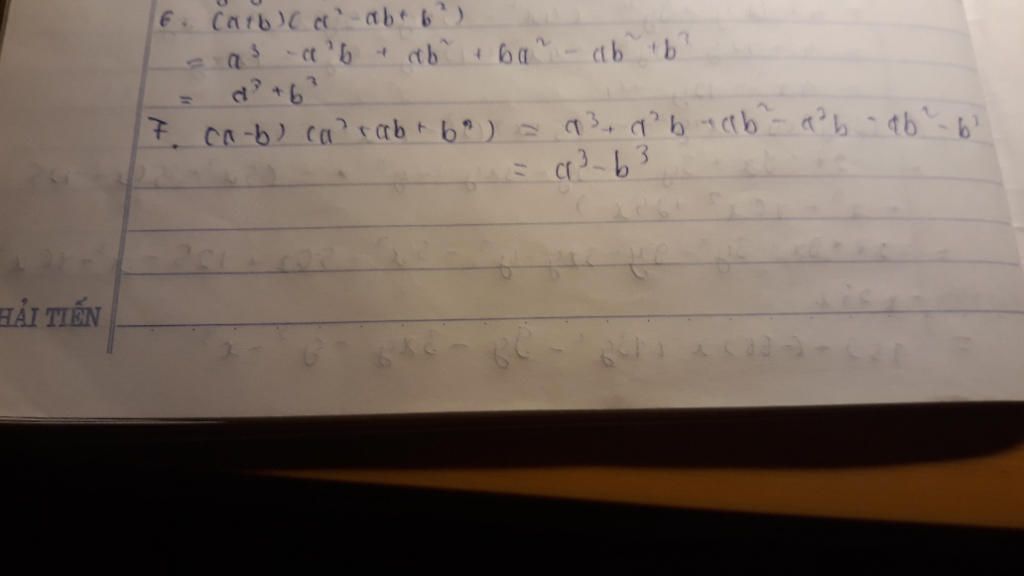 6. (a+b)(a² - ab + b²)
= a³ - a²b + ab² + ba² - ab² + b³
= a³ + b³
7. (a-b)(a² + ab + b²) = a³ + a²b + ab² - a²b - ab² - b³
= a³ - b³
HẢI TIẾN